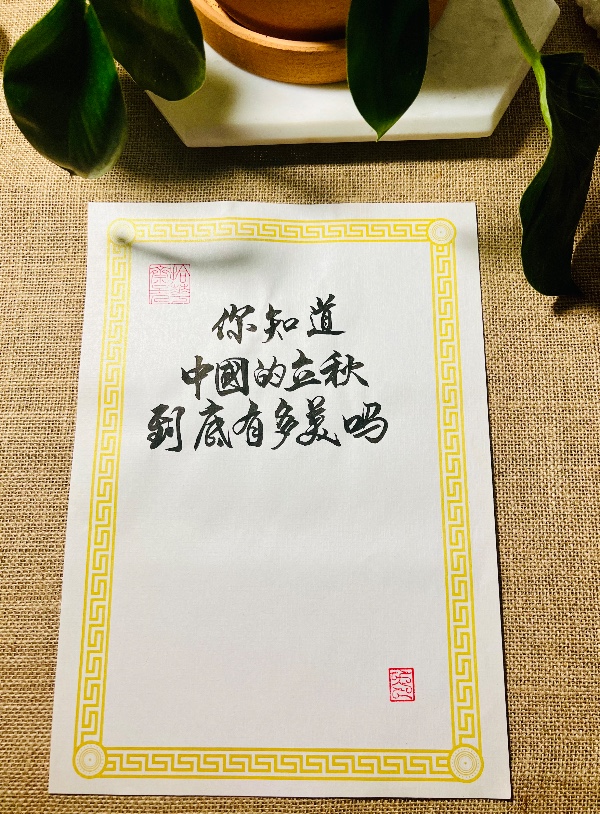 你知道
中國的立秋
到底有多美吗